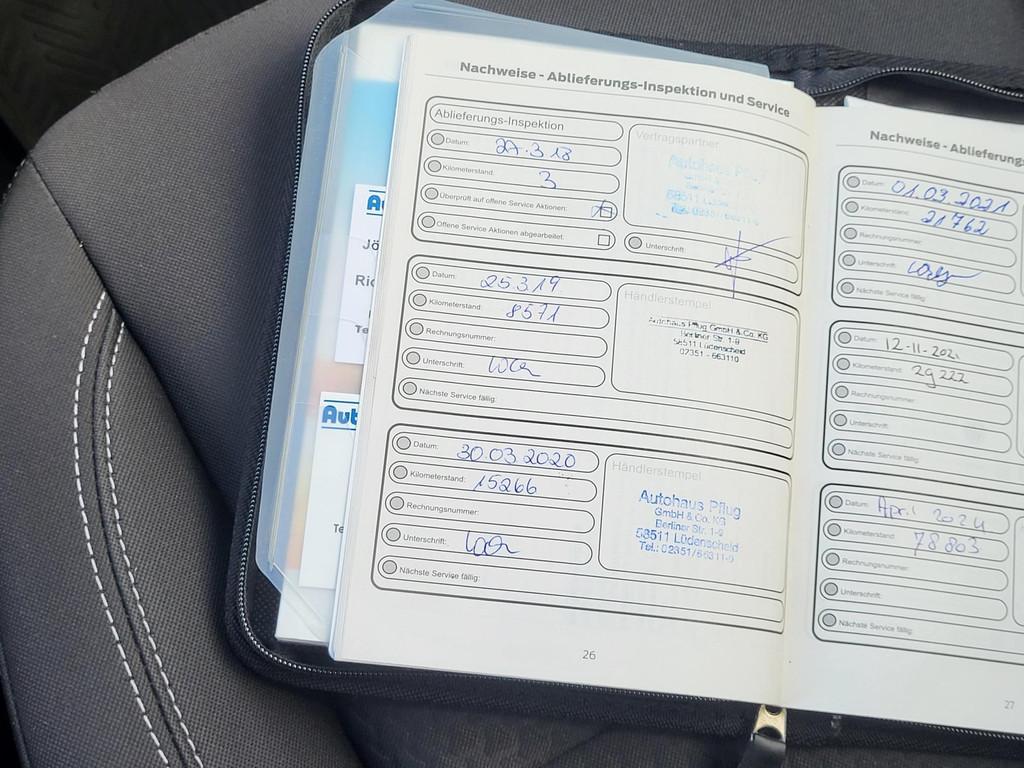 Nachweise - Ablieferungs-Inspektion und Service
Ablieferungs-Inspektion
Datum: 27.3.18
Kilometerstand: 3
Überprüft auf offene Service Aktionen:
Offene Service Aktionen abgearbeitet:
Vertragspartner
Autohaus Pflug
58511 Lüdenscheid
Unterschrift:
Datum: 25.3.19
Kilometerstand: 8571
Rechnungsnummer:
Unterschrift:
Nächste Service fällig:
Händlerstempel
Autohaus Pflug GmbH & Co. KG
Berliner Str. 1-9
58511 Lüdenscheid
02351 - 663110
Datum: 30.03.2020
Kilometerstand: 15266
Rechnungsnummer:
Unterschrift:
Nächste Service fällig:
Händlerstempel
Autohaus Pflug
GmbH & Co. KG
Berliner Str. 1-9
58511 Lüdenscheid
Tel.: 02351/66311-0
26
Nachweise - Ablieferungs
Datum: 01.03.2021
Kilometerstand: 21762
Rechnungsnummer:
Unterschrift:
Nächste Service fällig:
Datum: 12-11-2021
Kilometerstand: 29222
Rechnungsnummer:
Unterschrift:
Nächste Service fällig:
Datum: April 2024
Kilometerstand: 78803
Rechnungsnummer:
Unterschrift:
Nächste Service fällig:
27
Jö
Te
Aut
Te